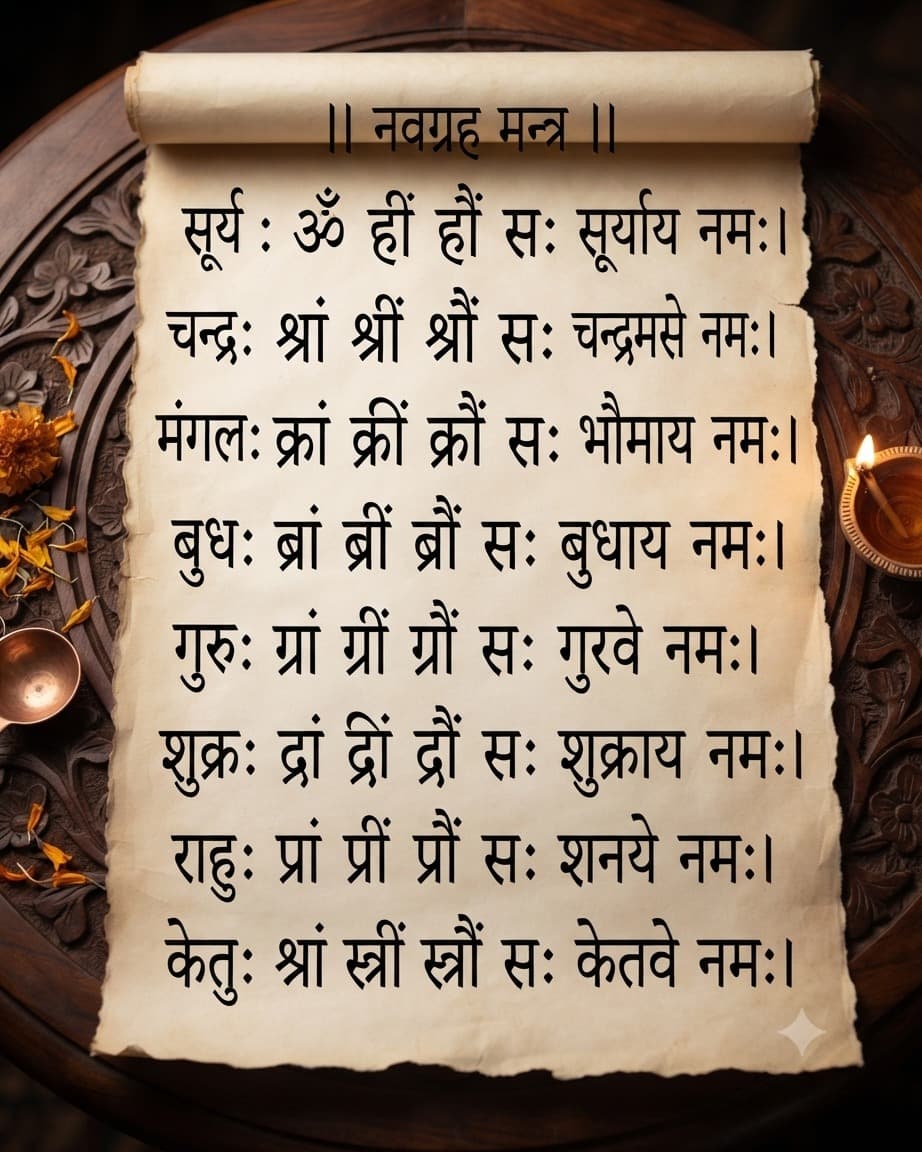 || नवग्रह मन्त्र ||
सूर्य : ॐ हीं हौं सः सूर्याय नमः।
चन्द्रः श्रां श्रीं श्रौं सः चन्द्रमसे नमः।
मंगलः क्रां क्रीं क्रौं सः भौमाय नमः।
बुधः ब्रां ब्रीं ब्रौं सः बुधाय नमः।
गुरुः ग्रां ग्रीं ग्रौं सः गुरवे नमः।
शुक्रः द्रां द्रीं द्रौं सः शुक्राय नमः।
राहुः प्रां प्रीं प्रौं सः शनये नमः।
केतुः श्रां स्त्रीं स्त्रौं सः केतवे नमः।